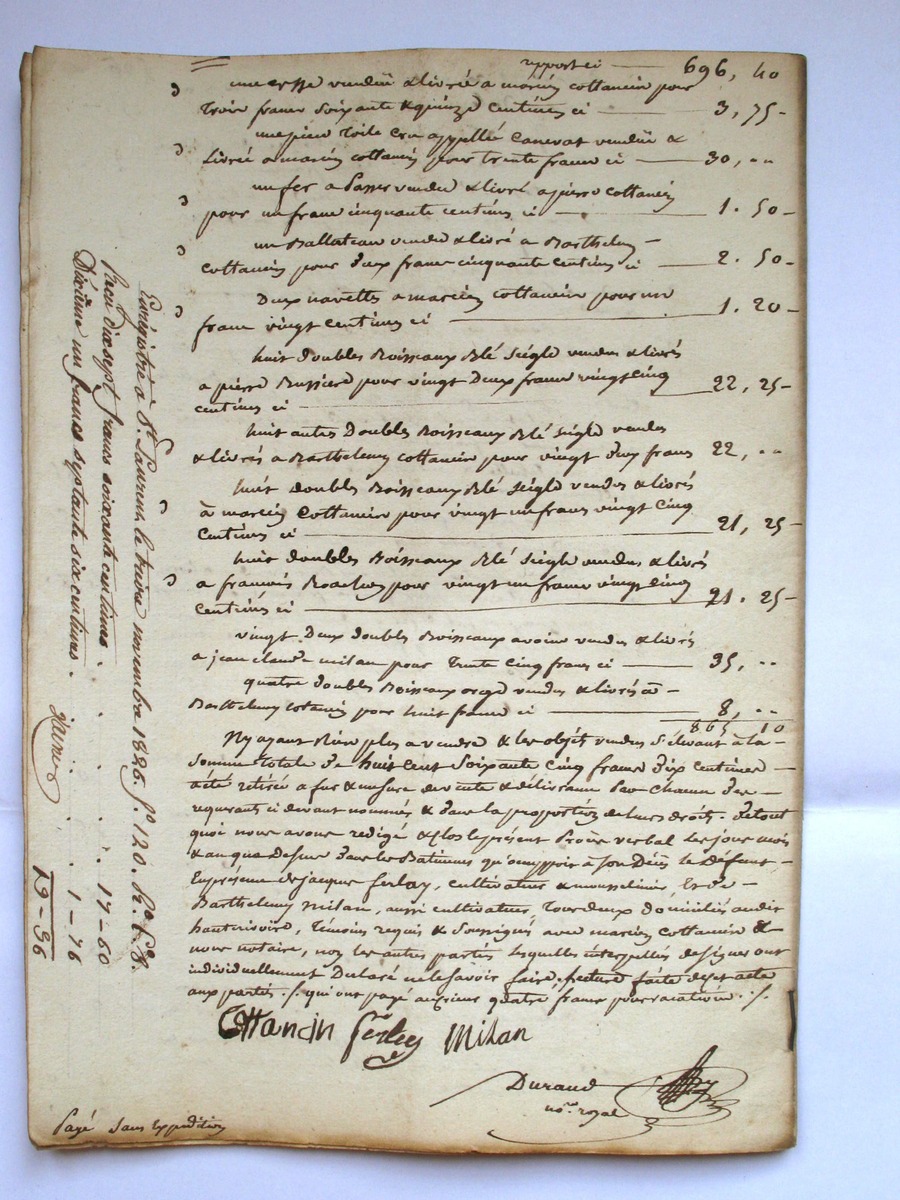 report ci 696, 40
une vendüe & livrée a marcien cottancin pour
Trois francs soixante & quinze centimes ci 3, 75
une piece Toile Crue appellée Canevat vendüe &
Livrée a marcien cottancin pour trente francs ci 30, ..
un fer a Passer vendu & livré a pierre cottancin
pour un franc cinquante centimes ci 1. 50
un vendu & livré a Barthelemy
cottancin pour Deux francs cinquante centimes ci 2. 50
Deux navettes a marcien cottancin pour un
franc vingt centimes ci 1. 20
huit doubles Boisseaux Blé seigle vendus & livrés
a pierre Bussiere pour vingt Deux francs vingt cinq
centimes ci 22, 25
huit autres Doubles Boisseaux Blé seigle vendus
& livrés a Barthelemy cottancin pour vingt deux francs 22, ..
huit doubles Boisseaux Blé seigle vendus & livrés
a marcien Cottancin pour vingt un francs vingt cinq
Centimes ci 21, 25
huit doubles Boisseaux Blé seigle vendus & livrés
a francois pour vingt un francs vingt cinq
Centimes ci 21. 25
vingt Deux doubles Boisseaux avoine vendus & livrés
a jean claude milan pour Trente cinq francs ci 35, ..
quatre doubles Boisseaux orge vendus & livrés a
Barthelemy cotancin pour huit francs ci 8, ..
865 10
N'y ayant Rien plus a vendre & les objets vendus s'élevant à la
somme totale de huit cent soixante cinq francs dix centimes
a été retirée a fur & mesure de vente & délivrance Par chacun des
requerants ci devant nommés & dans la proportion de leurs droits. de tout
quoi nous avons redigé & clos le présent Procès verbal les jour mois
& an que Dessus dans les Batimens qu'occuppoit à son Décès le Défunt
En presence de jacques ferley, cultivateur & Et de
Barthelemy Milan, aussi cultivateur, Tous deux domiciliés audit
hauterivoire, Témoins requis & soussignés avec marcien cottancin &
nous notaire, non les autres parties lesquelles interpellées de signer ont
individuellement Declaré ne le savoir faire, lecture faite de cet acte
aux parties ./. qui ont payé quatre francs pour vacation ./.
Cottancin ferley Milan
Durand
no.re royal
Payé sans Expédition
Enrégistré à St. Laurent le treize novembre 1826. f.o 120. R.o C.e 8.
Reçu dix sept francs soixante centimes. 17-60
Dixième un franc septante six centimes. 1-76
19-36